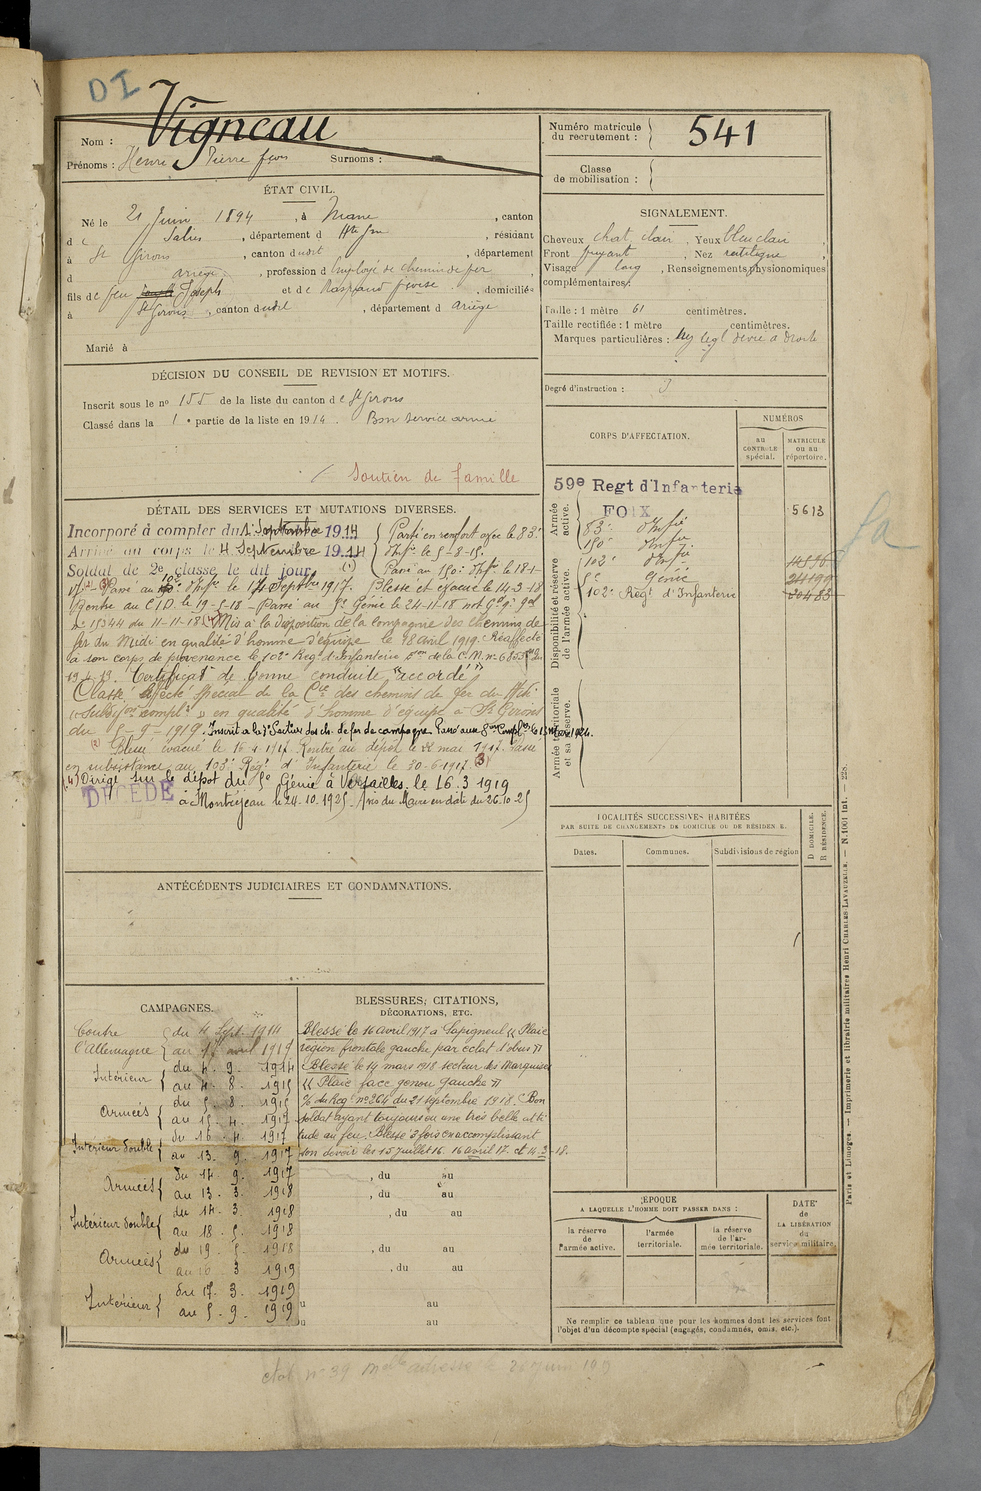 DI
Nom : Vigneau
Prénoms : Henri Pierre fçois Surnoms :
ÉTAT CIVIL.
Né le 21 Juin 1894, à Mane, canton
de Salies, département d Hte Gne, résidant
à St Girons, canton dudit, département
d ariège, profession d'Employé de chemin de fer
fils de feu Joseph et de Raspaud fçoise, domiciliés
à St Girons, canton dudit, département d Ariège
Marié à
DÉCISION DU CONSEIL DE REVISION ET MOTIFS.
Inscrit sous le no 155 de la liste du canton de St Girons
Classé dans la 1e partie de la liste en 1914. Bon service armé
Soutien de famille
DÉTAIL DES SERVICES ET MUTATIONS DIVERSES.
Incorporé à compter du 1er Septembre 1914
Arrivé au corps le 4 Septembre 1914
Soldat de 2e classe le dit jour (1)
Parti en renfort avec le 83e
d'Infie le 5-8-15.
Passé au 150e d'Infie le 18-1-
17 (2) Passé au 102e d'Infie le 14 Septbre 1917. Blessé et évacué le 14-3-18
Rentré au C.I.D. le 19-5-18 - Passé au 5e Génie le 24-11-18 not Gd Qr Gal
no 15344 du 11-11-18 (4) Mis à la disposition de la compagnie des chemins de
fer du Midi en qualité d'homme d'équipe le 18 avril 1919. Réaffecté
à son corps de provenance le 102e Regt d'Infanterie
19-4-19. Certificat de bonne conduite "accordé"
Classé affecté spécial de la Cie des chemins de fer du Midi
(Subdon compl) en qualité d'homme d'équipe à St Girons
du 5-9-1919. Inscrit à la 7e Section des ch. de fer de campagne.
(2) Blessé évacué le 16 4 1917. Rentré au dépôt le 22 mai 1917. Passé
en subsistance au 103e Regt d'Infanterie le 30-6-1917 (3)
(4) Dirigé sur le dépôt du 5e Génie à Versailles le 16.3.1919
DÉCÉDÉ à Montréjeau le 24.10.1925. Avis du Maire en date du 26.10.25
ANTÉCÉDENTS JUDICIAIRES ET CONDAMNATIONS.
CAMPAGNES.
Contre l'Allemagne { du 4 Sept. 1914
au 17 avril 1919
Intérieur { du 4. 9. 1914
au 4. 8. 1915
Armées { du 5. 8. 1915
au 15. 4. 1917
Intérieur double { du 16 4 1917
au 13. 9. 1917
Armées { du 14. 9. 1917
au 13. 3. 1918
Intérieur double { du 14. 3. 1918
au 18. 5. 1918
Armées { du 19. 5. 1918
au 16 3 1919
Intérieur { du 17. 3. 1919
au 5. 9. 1919
BLESSURES, CITATIONS,
DÉCORATIONS, ETC.
Blessé le 16 avril 1917 à Sapigneul "Plaie
région frontale gauche par éclat d'obus"
Blessé le 14 mars 1918 secteur des Marquises
"Plaie face genou gauche"
O/ du Regt no 264 du 21 septembre 1918. Bon
soldat ayant toujours eu une très belle atti
tude au feu. Blessé 3 fois en accomplissant
son devoir les 15 juillet 16. 16 avril 17. et 14-3-18.
, du au
, du au
, du au
, du au
, du au
u au
u au
Numéro matricule
du recrutement : 541
Classe
de mobilisation :
SIGNALEMENT.
Cheveux chat. clair, Yeux bleu clair,
Front fuyant, Nez rectiligne,
Visage long, Renseignements physionomiques
complémentaires :
Taille : 1 mètre 61 centimètres.
Taille rectifiée : 1 mètre centimètres.
Marques particulières : Nez légt dévié à droite
Degré d'instruction : 3
CORPS D'AFFECTATION.
NUMÉROS
au
CONTROLE
spécial.
MATRICULE
ou au
répertoire.
Armée
active.
59e Regt d'Infanterie
FOIX 5613
83e d'Infie
150e d'Infie
Disponibilité et réserve
de l'armée active.
102e d'Infie
5e Génie 24199
102e Regt d'Infanterie 20483
Armée territoriale
et sa réserve.
LOCALITÉS SUCCESSIVES HABITÉES
PAR SUITE DE CHANGEMENTS DE DOMICILE OU DE RÉSIDENCE.
Dates.
Communes.
Subdivisions de région
D DOMICILE.
R RÉSIDENCE.
ÉPOQUE
A LAQUELLE L'HOMME DOIT PASSER DANS :
la réserve
de
l'armée active.
l'armée
territoriale.
la réserve
de l'ar-
mée territoriale.
DATE
de
LA LIBÉRATION
du
service militaire.
Ne remplir ce tableau que pour les hommes dont les services font
l'objet d'un décompte spécial (engagés, condamnés, omis, etc.).
Paris et Limoges. — Imprimerie et librairie militaires Henri CHARLES-LAVAUZELLE. — N. 1001 int. — 228.